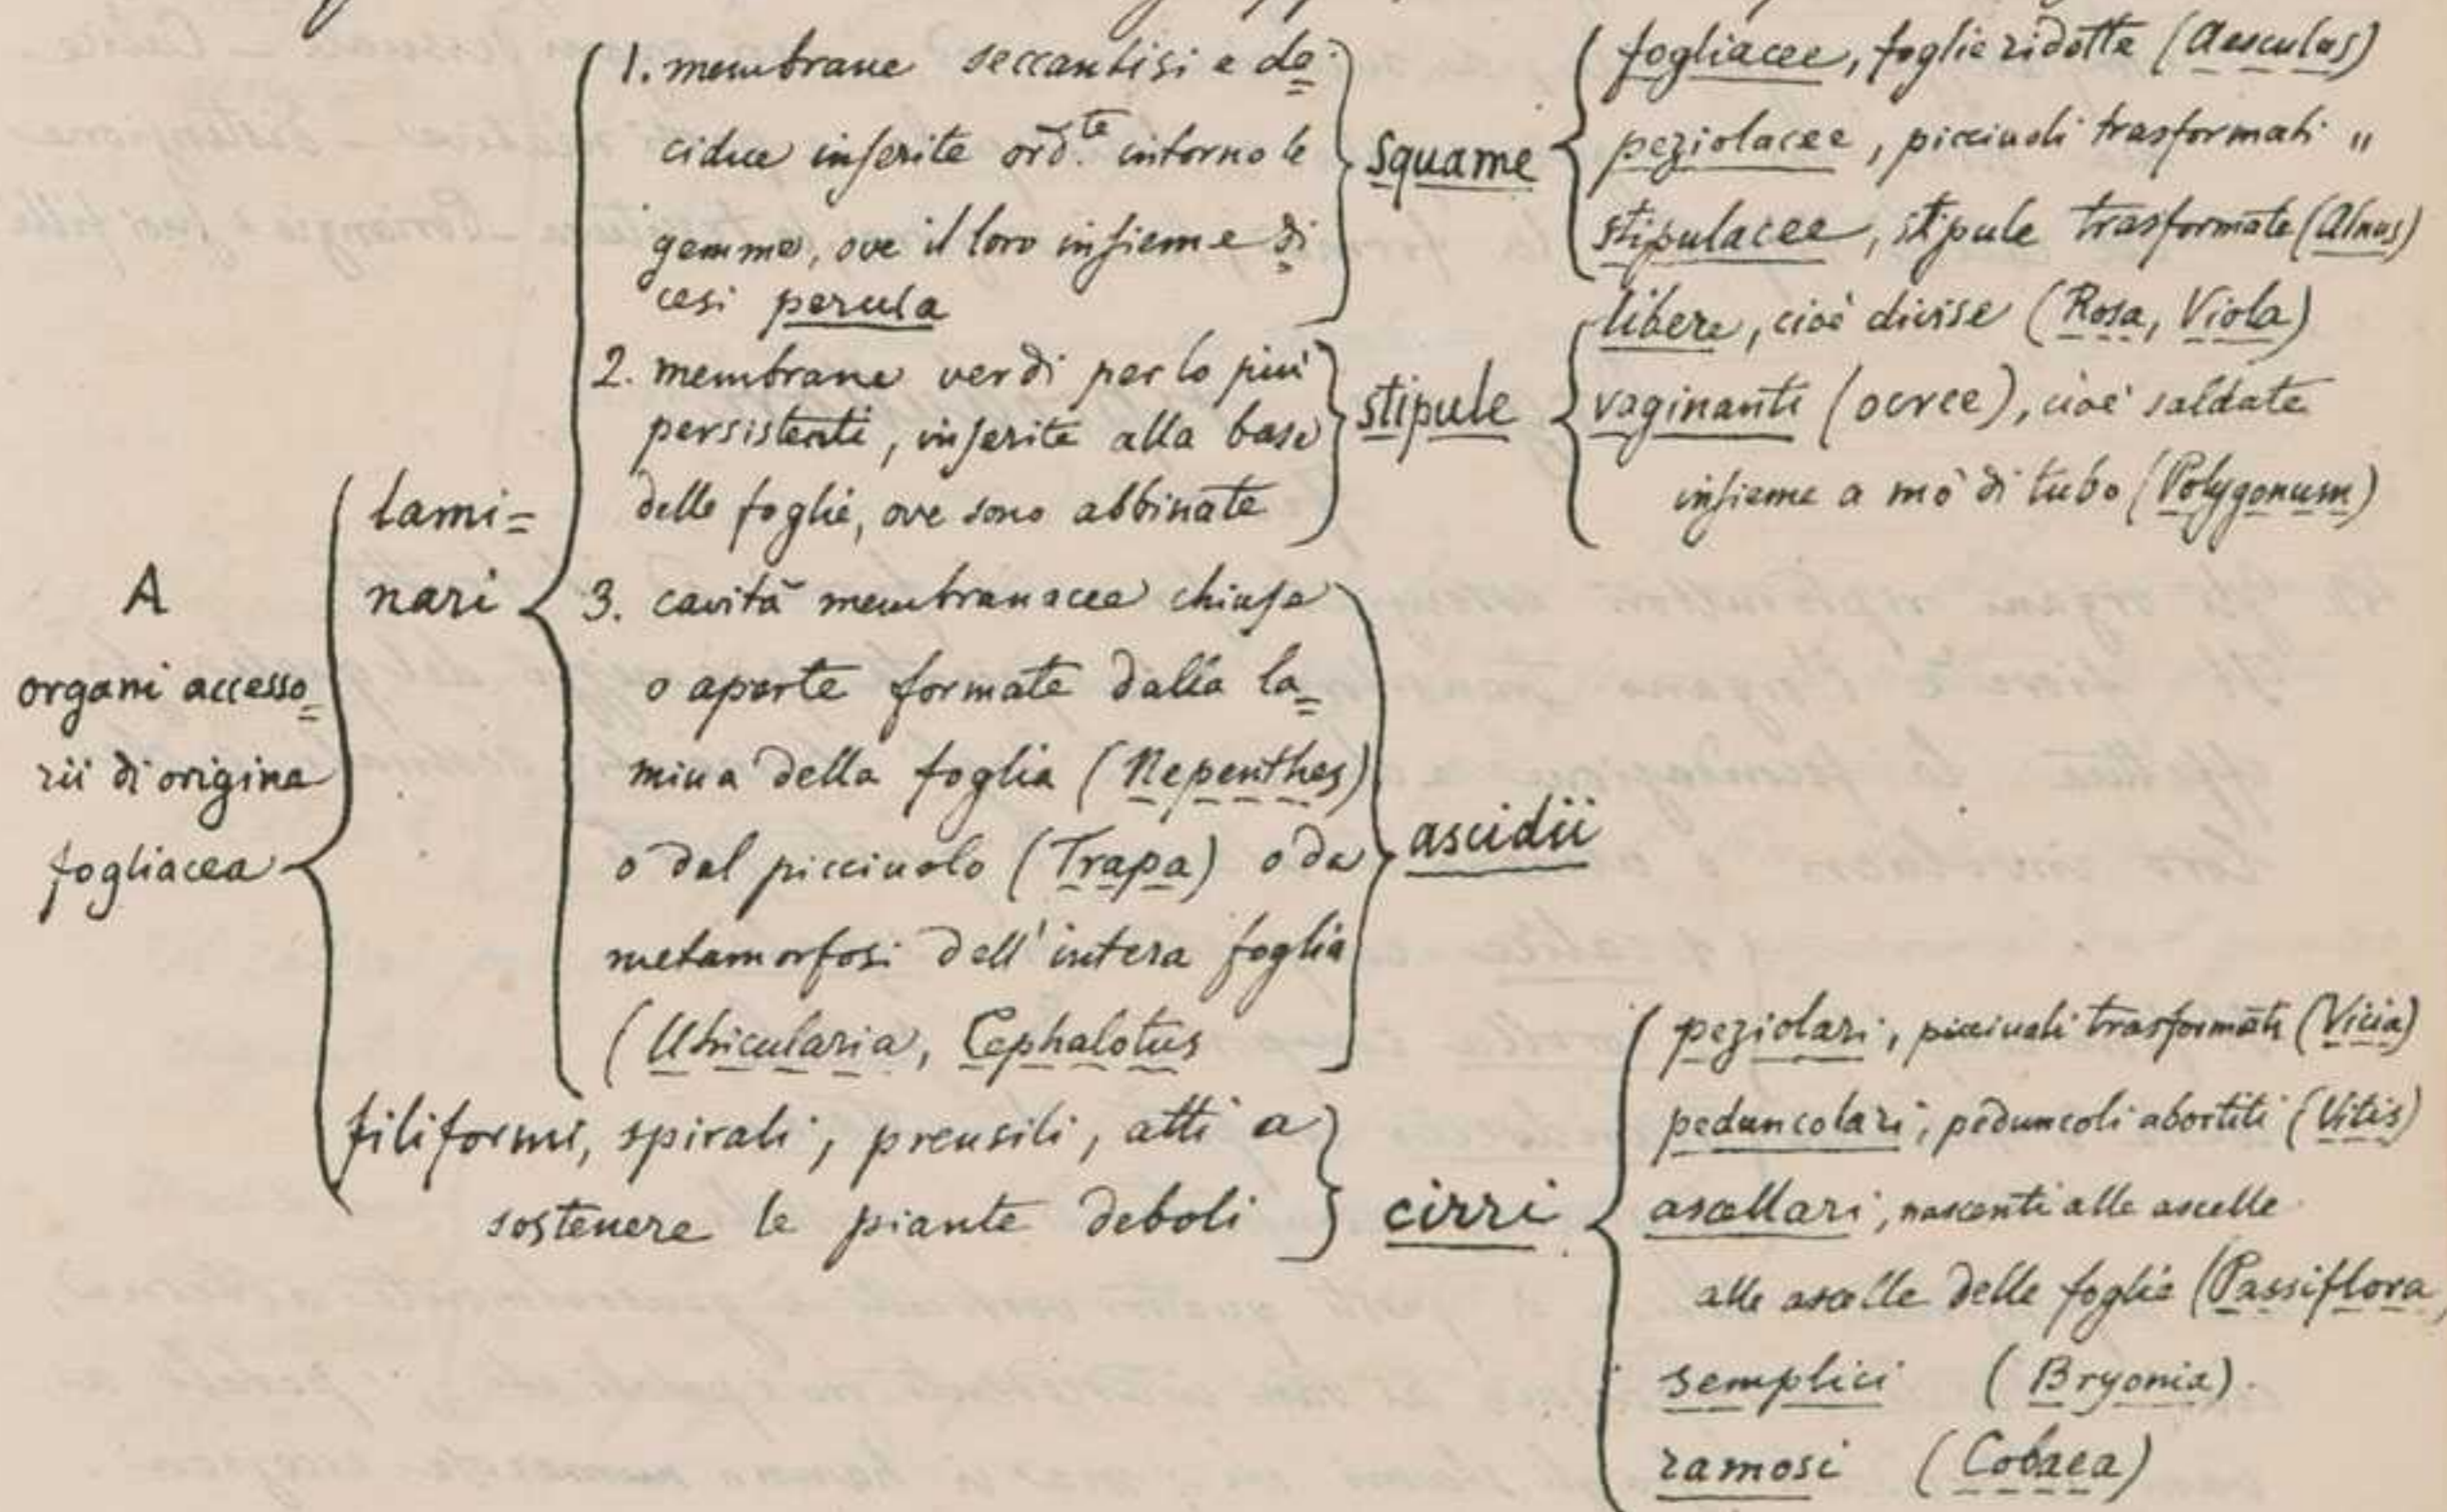 A
organi accesso=
rii di origine
fogliacea
lami=
nari
1. membrane seccantisi e de=
cidue inserite ord.te intorno le
gemme, ove il loro insieme di=
cesi perula
squame
fogliacee, foglie ridotte (Aesculus)
peziolacee, picciuoli trasformati "
stipulacee, stipule trasformate (Alnus)
2. membrane verdi per lo più
persistenti, inserite alla base
delle foglie, ove sono abbinate
stipule
libere, cioè divise (Rosa, Viola)
vaginanti (ocree), cioè saldate
insieme a mò di tubo (Polygonum)
3. cavità membranacee chiuse
o aperte formate dalla la=
mina della foglia (Nepenthes)
o dal picciuolo (Trapa) o da
metamorfosi dell'intera foglia
(Utricularia, Cephalotus
ascidii
filiformi, spirali, prensili, atti a
sostenere le piante deboli
cirri
peziolari, picciuoli trasformati (Vicia)
peduncolari, peduncoli abortiti (Vitis)
ascellari, nascenti alle ascelle
alle ascelle delle foglie (Passiflora)
semplici (Bryonia).
ramosi (Cobaea)